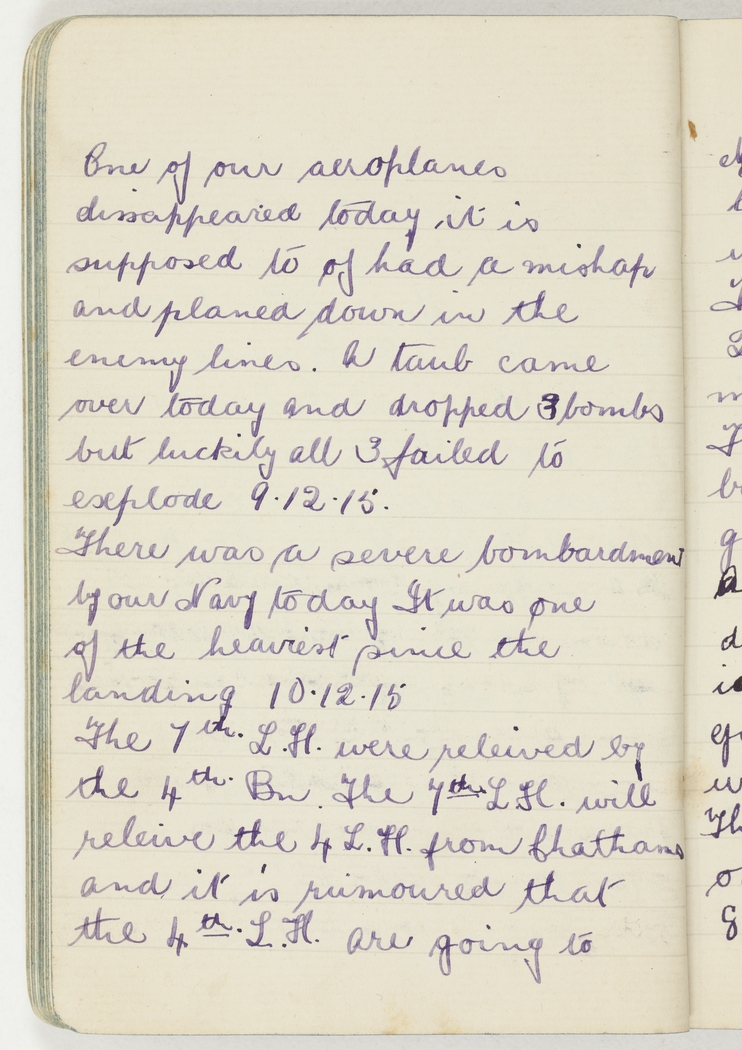 One of our aeroplanes
dissappeared today, it is
supposed to of had a mishap
and planed down in the
enemy lines. A taub came
over today and dropped 3 bombs
but luckily all 3 failed to
exeplode 9.12.15.
There was a severe bombardment
by our Navy today It was one
of the heaviest since the
landing 10.12.15
The 7th. L.H. were releived by
the 4th. Bn. The 7th. L.H. will
releive the 4 L.H. from Chathams
and it is rumoured that
the 4th. L.H. are going to